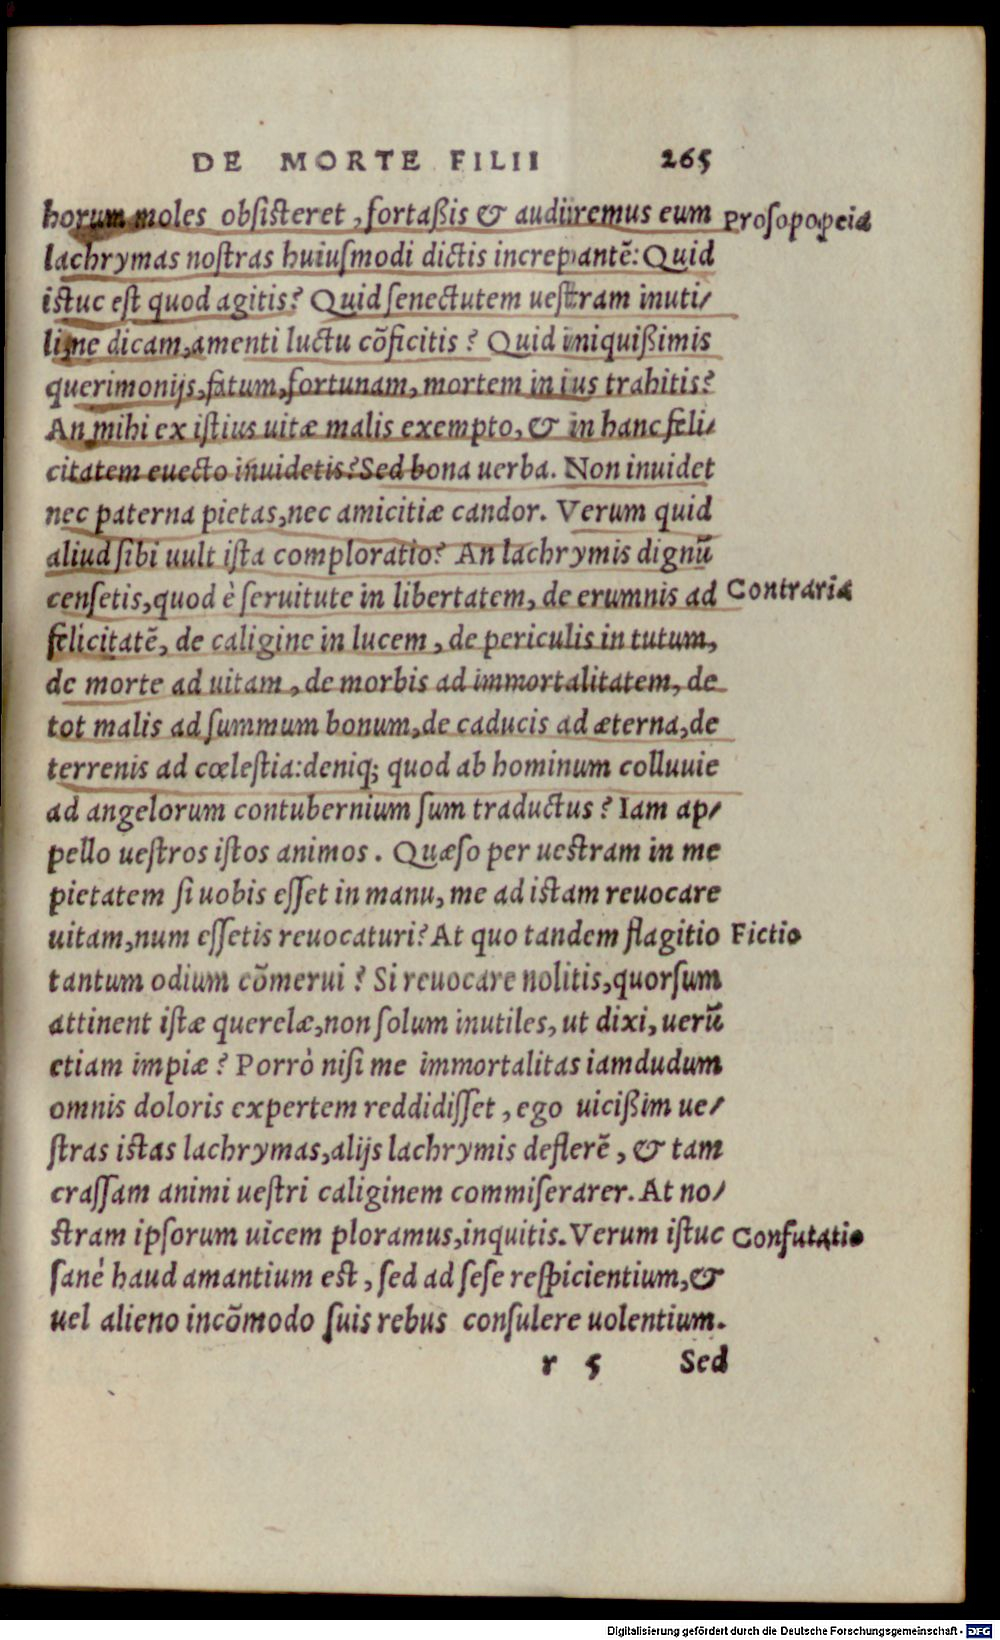 DE MORTE FILII 265
horum moles obsisteret, fortaßis & audiremus eum Prosopopeia
lachrymas nostras huiusmodi dictis increpantẽ: Quid
istuc est quod agitis? Quid senectutem uestram inuti/
li, ne dicam, amenti luctu cõficitis? Quid iniquißimis
querimonijs, fatum, fortunam, mortem in ius trahitis?
An mihi ex istius uitæ malis exempto, & in hanc feli/
citatem euecto inuidetis? Sed bona uerba. Non inuidet
nec paterna pietas, nec amicitiæ candor. Verum quid
aliud sibi uult ista comploratio? An lachrymis dignũ
censetis, quod è seruitute in libertatem, de erumnis ad Contraria
felicitatẽ, de caligine in lucem, de periculis in tutum,
de morte ad uitam, de morbis ad immortalitatem, de
tot malis ad summum bonum, de caducis ad æterna, de
terrenis ad cœlestia: deniq; quod ab hominum colluuie
ad angelorum contubernium sum traductus? Iam ap/
pello uestros istos animos. Quæso per uestram in me
pietatem si uobis esset in manu, me ad istam reuocare
uitam, num essetis reuocaturi? At quo tandem flagitio Fictio
tantum odium cõmerui? Si reuocare nolitis, quorsum
attinent istæ querelæ, non solum inutiles, ut dixi, uerũ
etiam impiæ? Porrò nisi me immortalitas iamdudum
omnis doloris expertem reddidisset, ego uicißim ue/
stras istas lachrymas, alijs lachrymis deflerẽ, & tam
crassam animi uestri caliginem commiserarer. At no/
stram ipsorum uicem ploramus, inquitis. Verum istuc Confutatio
sanè haud amantium est, sed ad sese respicientium, &
uel alieno incõmodo suis rebus consulere uolentium.
r 5 Sed
Digitalisierung gefördert durch die Deutsche Forschungsgemeinschaft - DFG